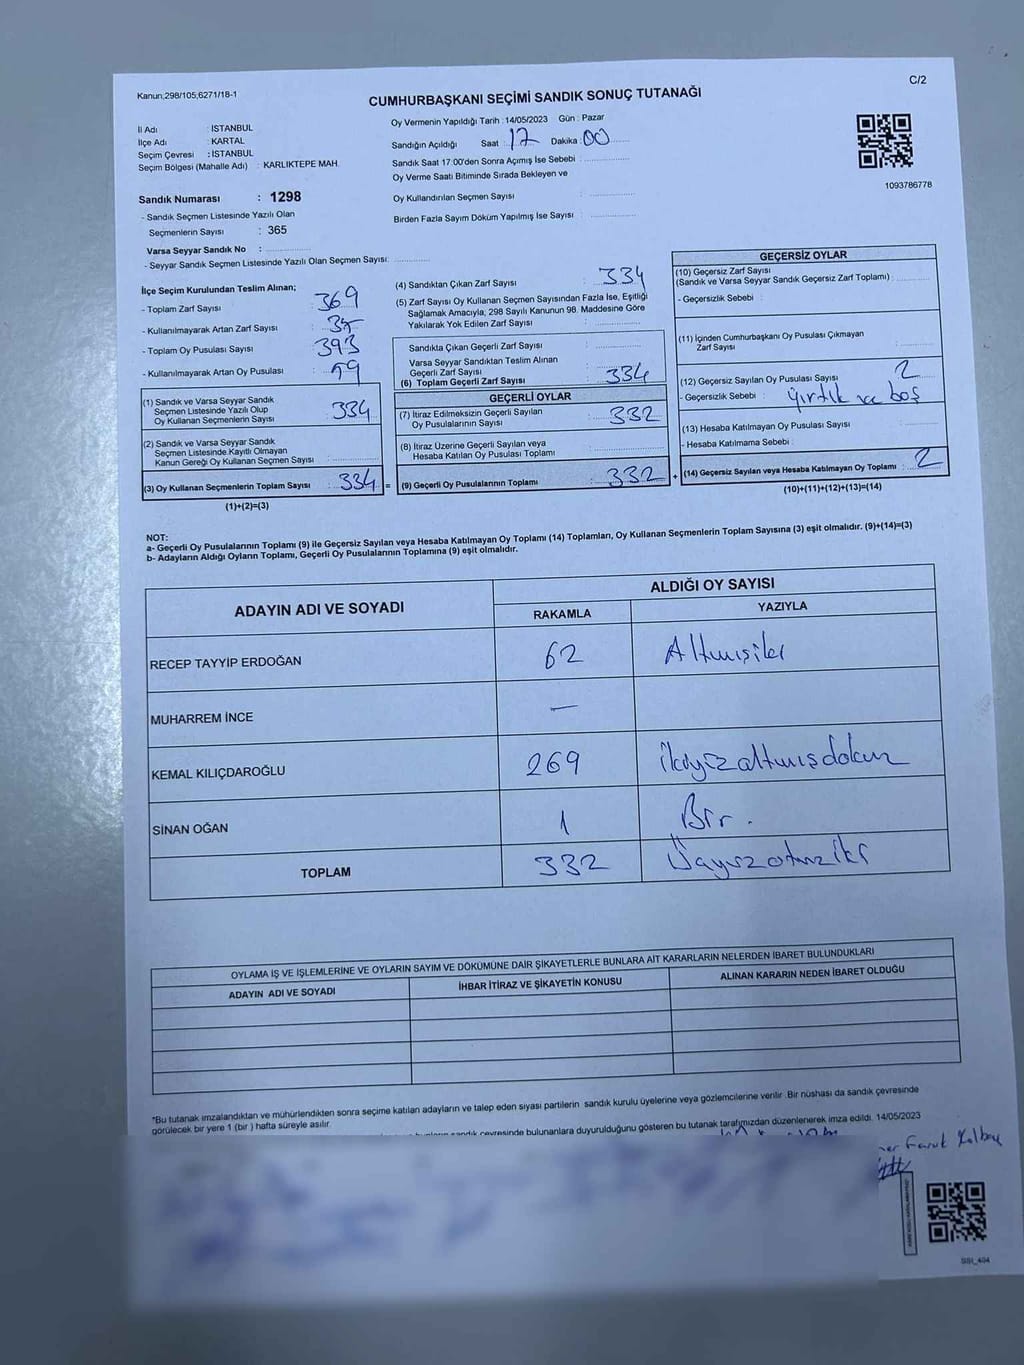 Kanun,298/105,6271/18-1
C/2
CUMHURBAŞKANI SEÇİMİ SANDIK SONUÇ TUTANAĞI
İl Adı : İSTANBUL
İlçe Adı : KARTAL
Seçim Çevresi : İSTANBUL
Seçim Bölgesi (Mahalle Adı) : KARLIKTEPE MAH.
Sandık Numarası : 1298
- Sandık Seçmen Listesinde Yazılı Olan
Seçmenlerin Sayısı : 365
Varsa Seyyar Sandık No :
- Seyyar Sandık Seçmen Listesinde Yazılı Olan Seçmen Sayısı:
Oy Vermenin Yapıldığı Tarih : 14/05/2023 Gün : Pazar
Sandığın Açıldığı Saat 17 Dakika 00
Sandık Saat 17:00'den Sonra Açımış İse Sebebi :
Oy Verme Saati Bitiminde Sırada Bekleyen ve
Oy Kullandırılan Seçmen Sayısı :
Birden Fazla Sayım Döküm Yapılmış İse Sayısı :
1093786778
İlçe Seçim Kurulundan Teslim Alınan;
- Toplam Zarf Sayısı : 369
- Kullanılmayarak Artan Zarf Sayısı :
- Toplam Oy Pusulası Sayısı : 393
- Kullanılmayarak Artan Oy Pusulası :
(1) Sandık ve Varsa Seyyar Sandık
Seçmen Listesinde Yazılı Olup
Oy Kullanan Seçmenlerin Sayısı : 334
(2) Sandık ve Varsa Seyyar Sandık
Seçmen Listesinde Kayıtlı Olmayan
Kanun Gereği Oy Kullanan Seçmen Sayısı :
(3) Oy Kullanan Seçmenlerin Toplam Sayısı : 334 =
(1)+(2)=(3)
(4) Sandıktan Çıkan Zarf Sayısı : 334
(5) Zarf Sayısı Oy Kullanan Seçmen Sayısından Fazla İse, Eşitliği
Sağlamak Amacıyla, 298 Sayılı Kanunun 98. Maddesine Göre
Yakılarak Yok Edilen Zarf Sayısı :
Sandıkta Çıkan Geçerli Zarf Sayısı :
Varsa Seyyar Sandıktan Teslim Alınan
Geçerli Zarf Sayısı :
(6) Toplam Geçerli Zarf Sayısı : 334
GEÇERLİ OYLAR
(7) İtiraz Edilmeksizin Geçerli Sayılan
Oy Pusulalarının Sayısı : 332
(8) İtiraz Üzerine Geçerli Sayılan veya
Hesaba Katılan Oy Pusulası Toplamı :
(9) Geçerli Oy Pusulalarının Toplamı : 332 +
GEÇERSİZ OYLAR
(10) Geçersiz Zarf Sayısı
(Sandık ve Varsa Seyyar Sandık Geçersiz Zarf Toplamı) :
- Geçersizlik Sebebi :
(11) İçinden Cumhurbaşkanı Oy Pusulası Çıkmayan
Zarf Sayısı :
(12) Geçersiz Sayılan Oy Pusulası Sayısı : 2
- Geçersizlik Sebebi : yırtık ve boş
(13) Hesaba Katılmayan Oy Pusulası Sayısı :
- Hesaba Katılmama Sebebi :
(14) Geçersiz Sayılan veya Hesaba Katılmayan Oy Toplamı : 2
(10)+(11)+(12)+(13)=(14)
NOT:
a- Geçerli Oy Pusulalarının Toplamı (9) ile Geçersiz Sayılan veya Hesaba Katılmayan Oy Toplamı (14) Toplamları, Oy Kullanan Seçmenlerin Toplam Sayısına (3) eşit olmalıdır. (9)+(14)=(3)
b- Adayların Aldığı Oyların Toplamı, Geçerli Oy Pusulalarının Toplamına (9) eşit olmalıdır.
ADAYIN ADI VE SOYADI
ALDIĞI OY SAYISI
RAKAMLA YAZIYLA
RECEP TAYYİP ERDOĞAN 62 Altmışiki
MUHARREM İNCE —
KEMAL KILIÇDAROĞLU 269 ikiyüzaltmışdokuz
SİNAN OĞAN 1 Bir.
TOPLAM 332 Üçyüzotuziki
OYLAMA İŞ VE İŞLEMLERİNE VE OYLARIN SAYIM VE DÖKÜMÜNE DAİR ŞİKAYETLERLE BUNLARA AİT KARARLARIN NELERDEN İBARET BULUNDUKLARI
ADAYIN ADI VE SOYADI İHBAR İTİRAZ VE ŞİKAYETİN KONUSU ALINAN KARARIN NEDEN İBARET OLDUĞU
*Bu tutanak imzalandıktan ve mühürlendikten sonra seçime katılan adayların ve talep eden siyasi partilerin sandık kurulu üyelerine veya gözlemcilerine verilir. Bir nüshası da sandık çevresinde
görülecek bir yere 1 (bir ) hafta süreyle asılır.
sandık çevresinde bulunanlara duyurulduğunu gösteren bu tutanak tarafımızdan düzenlenerek imza edildi. 14/05/2023
Faruk
SSI_404